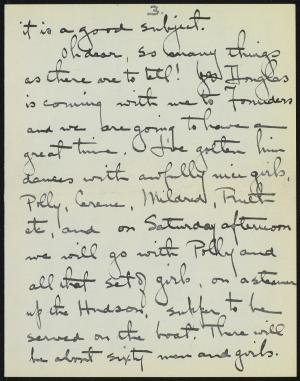 3.
it is a good subject.
Oh dear, so many things
as there are to tell! Douglas
is coming with me to Founders
and we are going to have a
great time. I've gotten him
dances with awfully nice girls,
Polly, Carene, Mildred, Ruth
etc, and on Saturday afternoon
we will go with Polly and
all that set of girls, on a steamer
up the Hudson, supper to be
served on the boat. There will
be about sixty men and girls.